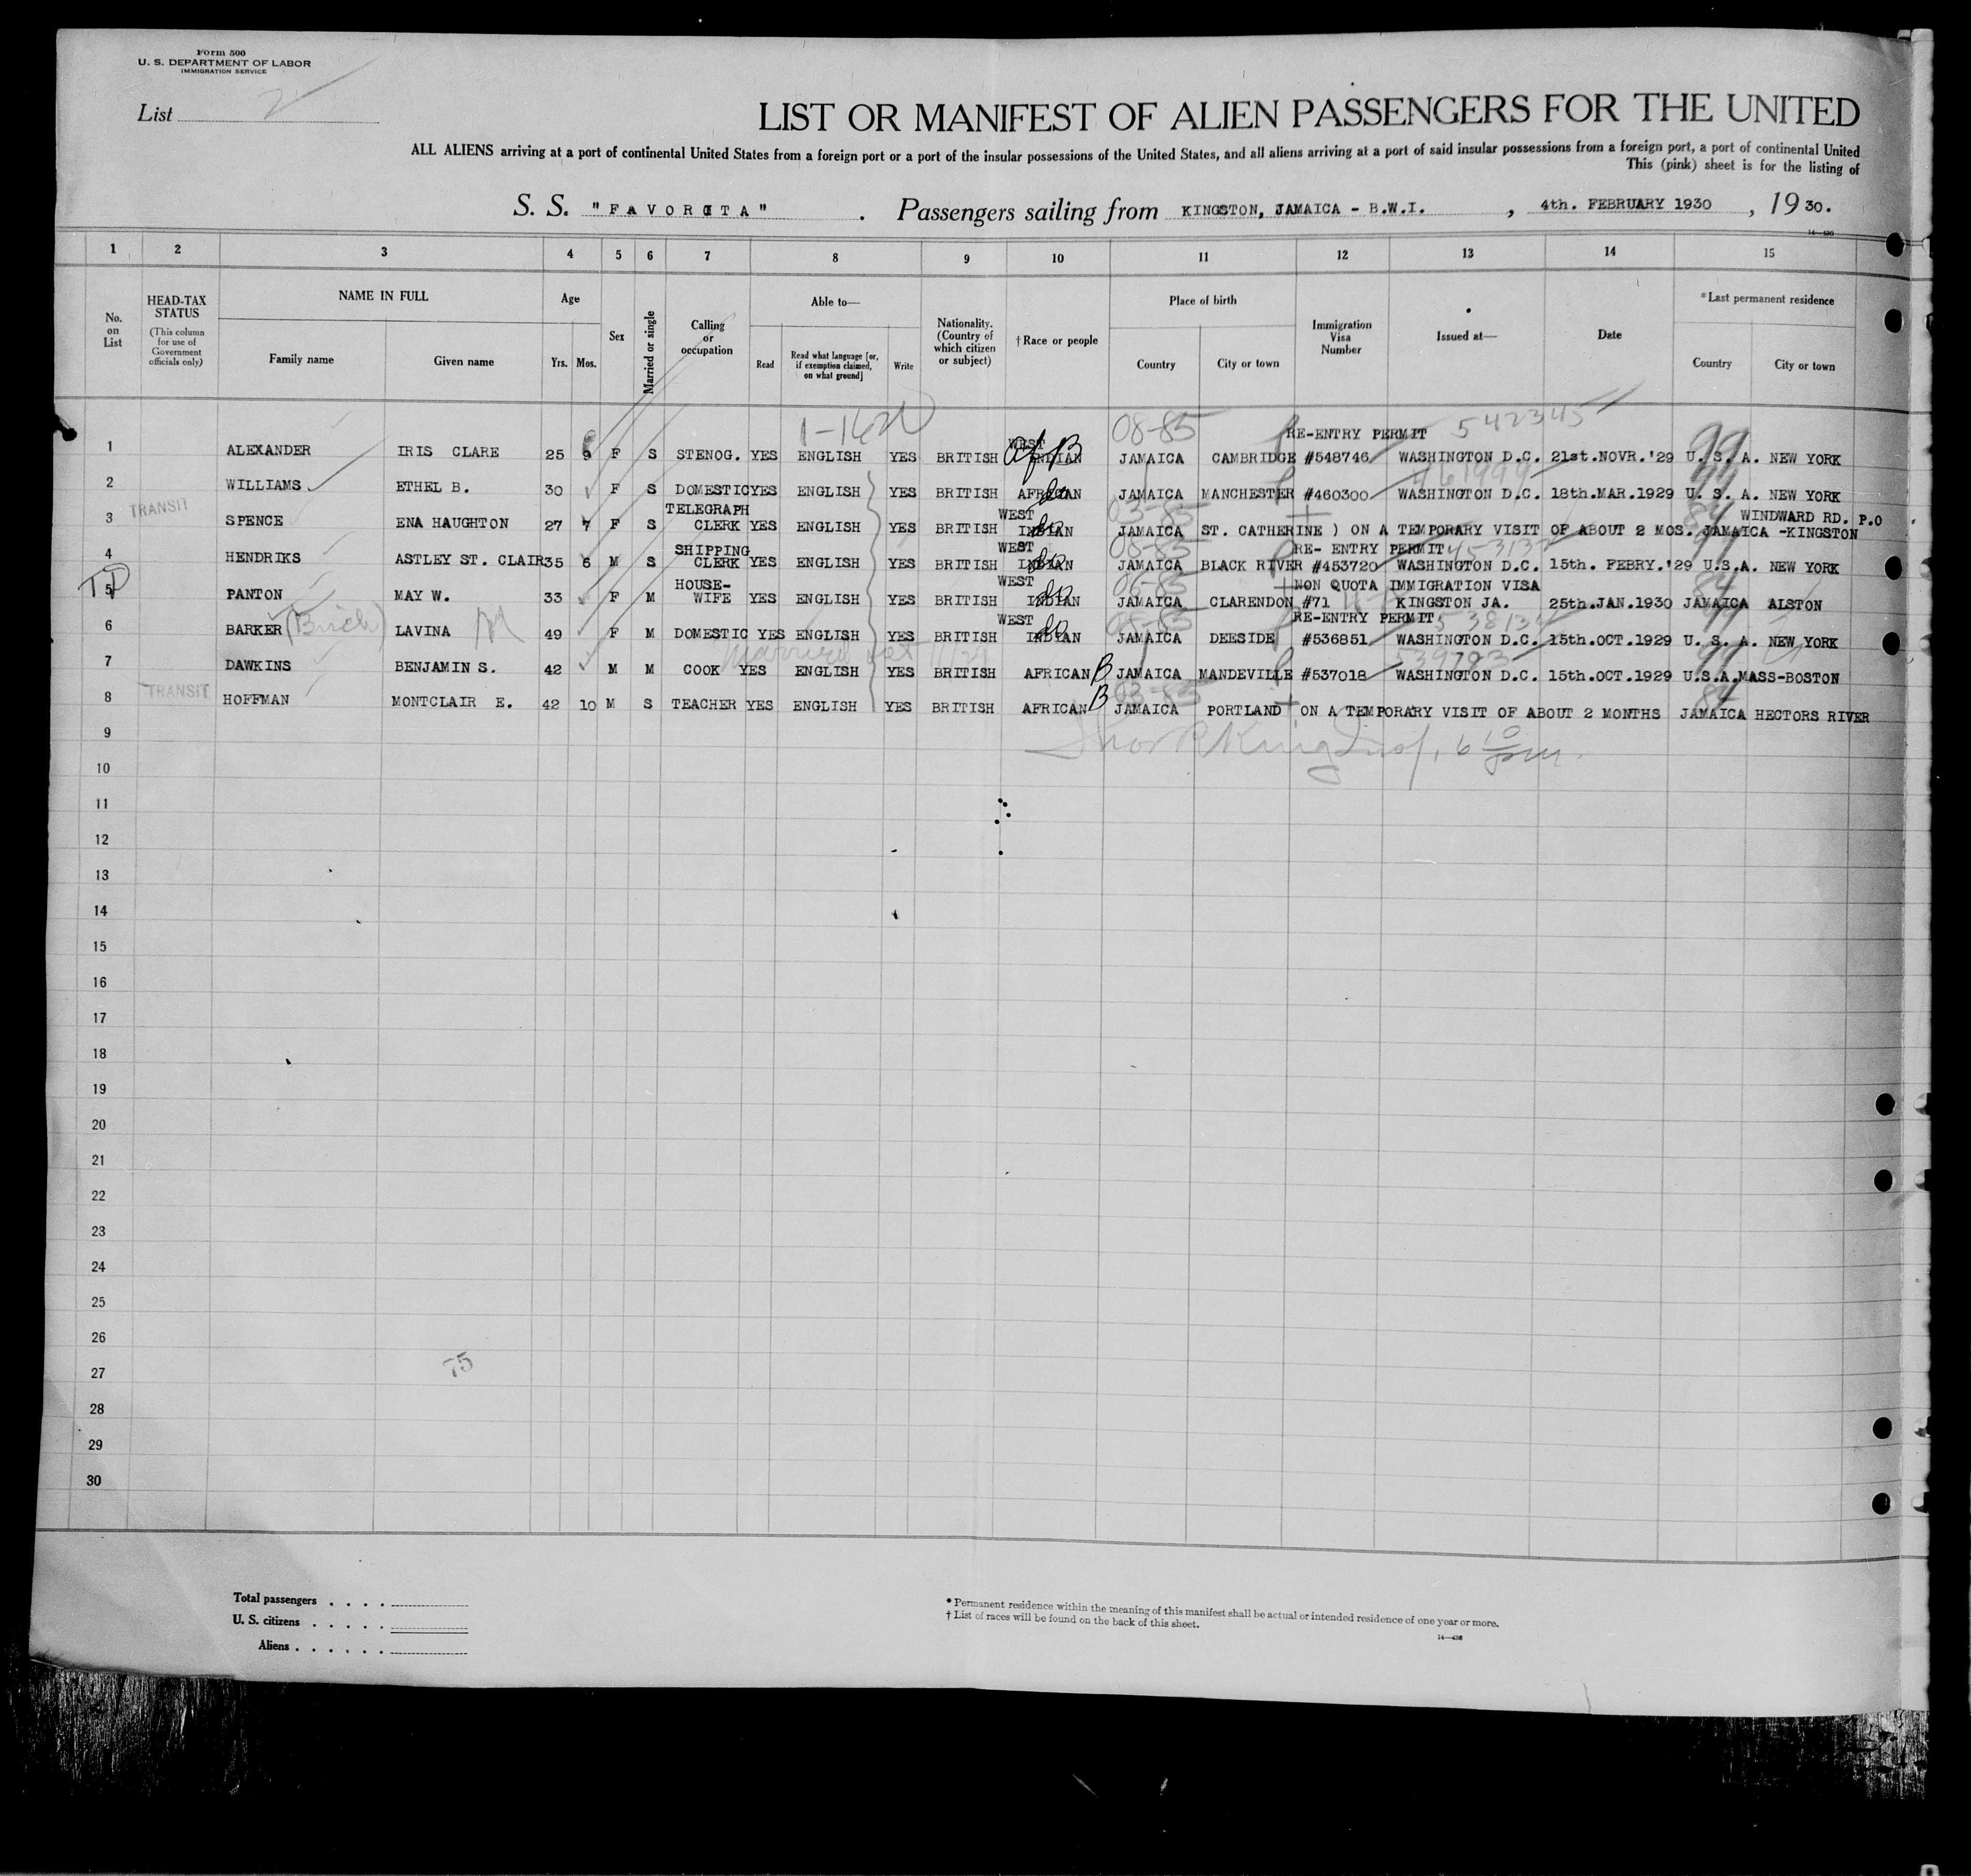 Form 500
U. S. DEPARTMENT OF LABOR
IMMIGRATION SERVICE
List 2
LIST OR MANIFEST OF ALIEN PASSENGERS FOR THE UNITED
ALL ALIENS arriving at a port of continental United States from a foreign port or a port of the insular possessions of the United States, and all aliens arriving at a port of said insular possessions from a foreign port, a port of continental United
This (pink) sheet is for the listing of
S. S. "FAVORITA". Passengers sailing from KINGSTON, JAMAICA - B.W.I., 4th. FEBRUARY 1930, 1930.
14—436
1 2 3 4 5 6 7 8 9 10 11 12 13 14 15
No. on List
HEAD-TAX STATUS (This column for use of Government officials only)
NAME IN FULL
Family name Given name
Age
Yrs. Mos.
Sex
Married or single
Calling or occupation
Able to—
Read Read what language [or, if exemption claimed, on what ground] Write
Nationality. (Country of which citizen or subject)
† Race or people
Place of birth
Country City or town
Immigration Visa Number
Issued at—
Date
*Last permanent residence
Country City or town
1-1620 08-85 RE-ENTRY PERMIT 542345
1 ALEXANDER IRIS CLARE 25 9 F S STENOG. YES ENGLISH YES BRITISH WEST INDIAN Af B JAMAICA CAMBRIDGE #548746 WASHINGTON D.C. 21st.NOVR.'29 U. S. A. NEW YORK 99
461999
2 WILLIAMS ETHEL B. 30 F S DOMESTIC YES ENGLISH YES BRITISH AFRICAN do JAMAICA MANCHESTER #460300 WASHINGTON D.C. 18th.MAR.1929 U. S. A. NEW YORK 99
TRANSIT
3 SPENCE ENA HAUGHTON 27 7 F S TELEGRAPH CLERK YES ENGLISH YES BRITISH WEST INDIAN do 03-85 JAMAICA ST. CATHERINE ) ON A TEMPORARY VISIT OF ABOUT 2 MOS. JAMAICA -KINGSTON WINDWARD RD. P.O 84
08-85 RE- ENTRY PERMIT 453137
4 HENDRIKS ASTLEY ST. CLAIR 35 6 M S SHIPPING CLERK YES ENGLISH YES BRITISH WEST INDIAN do JAMAICA BLACK RIVER #453720 WASHINGTON D.C. 15th. FEBRY.'29 U.S.A. NEW YORK 99
08-85 NON QUOTA IMMIGRATION VISA
5 PANTON MAY W. 33 F M HOUSE-WIFE YES ENGLISH YES BRITISH WEST INDIAN do JAMAICA CLARENDON #71 KINGSTON JA. 25th.JAN.1930 JAMAICA ALSTON 84
08-85 RE-ENTRY PERMIT 538137
6 BARKER LAVINA M 49 F M DOMESTIC YES ENGLISH YES BRITISH WEST INDIAN do JAMAICA DEESIDE #536851 WASHINGTON D.C. 15th.OCT.1929 U. S. A. NEW YORK 99
539793
7 DAWKINS BENJAMIN S. 42 M M COOK YES ENGLISH YES BRITISH AFRICAN B JAMAICA MANDEVILLE #537018 WASHINGTON D.C. 15th.OCT.1929 U.S.A. MASS-BOSTON 99
TRANSIT
8 HOFFMAN MONTCLAIR E. 42 10 M S TEACHER YES ENGLISH YES BRITISH AFRICAN B 03-85 JAMAICA PORTLAND ON A TEMPORARY VISIT OF ABOUT 2 MONTHS JAMAICA HECTORS RIVER 84
9
10
11
12
13
14
15
16
17
18
19
20
21
22
23
24
25
26
27
75
28
29
30
Total passengers . . . .
U. S. citizens . . . . .
Aliens . . . . . .
* Permanent residence within the meaning of this manifest shall be actual or intended residence of one year or more.
† List of races will be found on the back of this sheet.
14—436